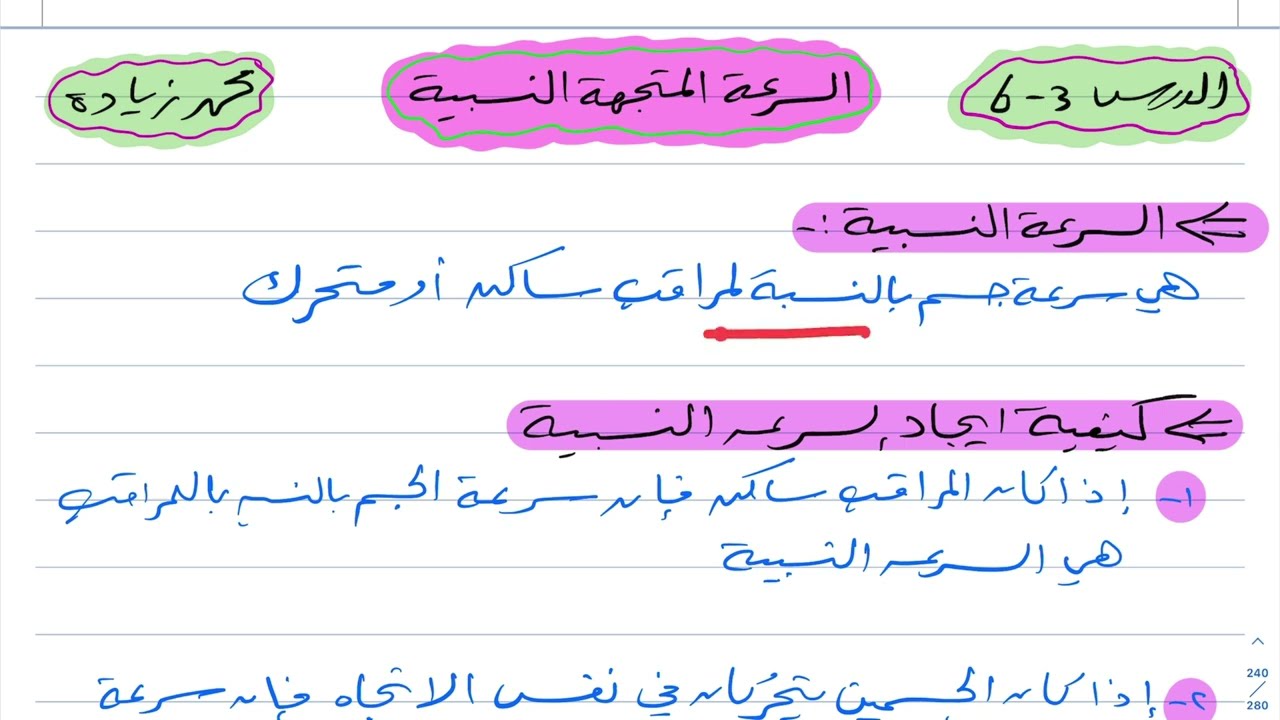 الدرس 3-6
السرعة المتجهة النسبية
محمد زيادة
السرعة النسبية :-
هي سرعة جسم بالنسبة لمراقب ساكن أو متحرك
كيفية ايجاد السرعه النسبية
١- إذا كان المراقب ساكن فإن سرعة الجسم بالنسبه بالمراقب
هي السرعه النسبية
٢- إذا كان الجسمين يتحركان في نفس الاتجاه فإن سرعة
240
280